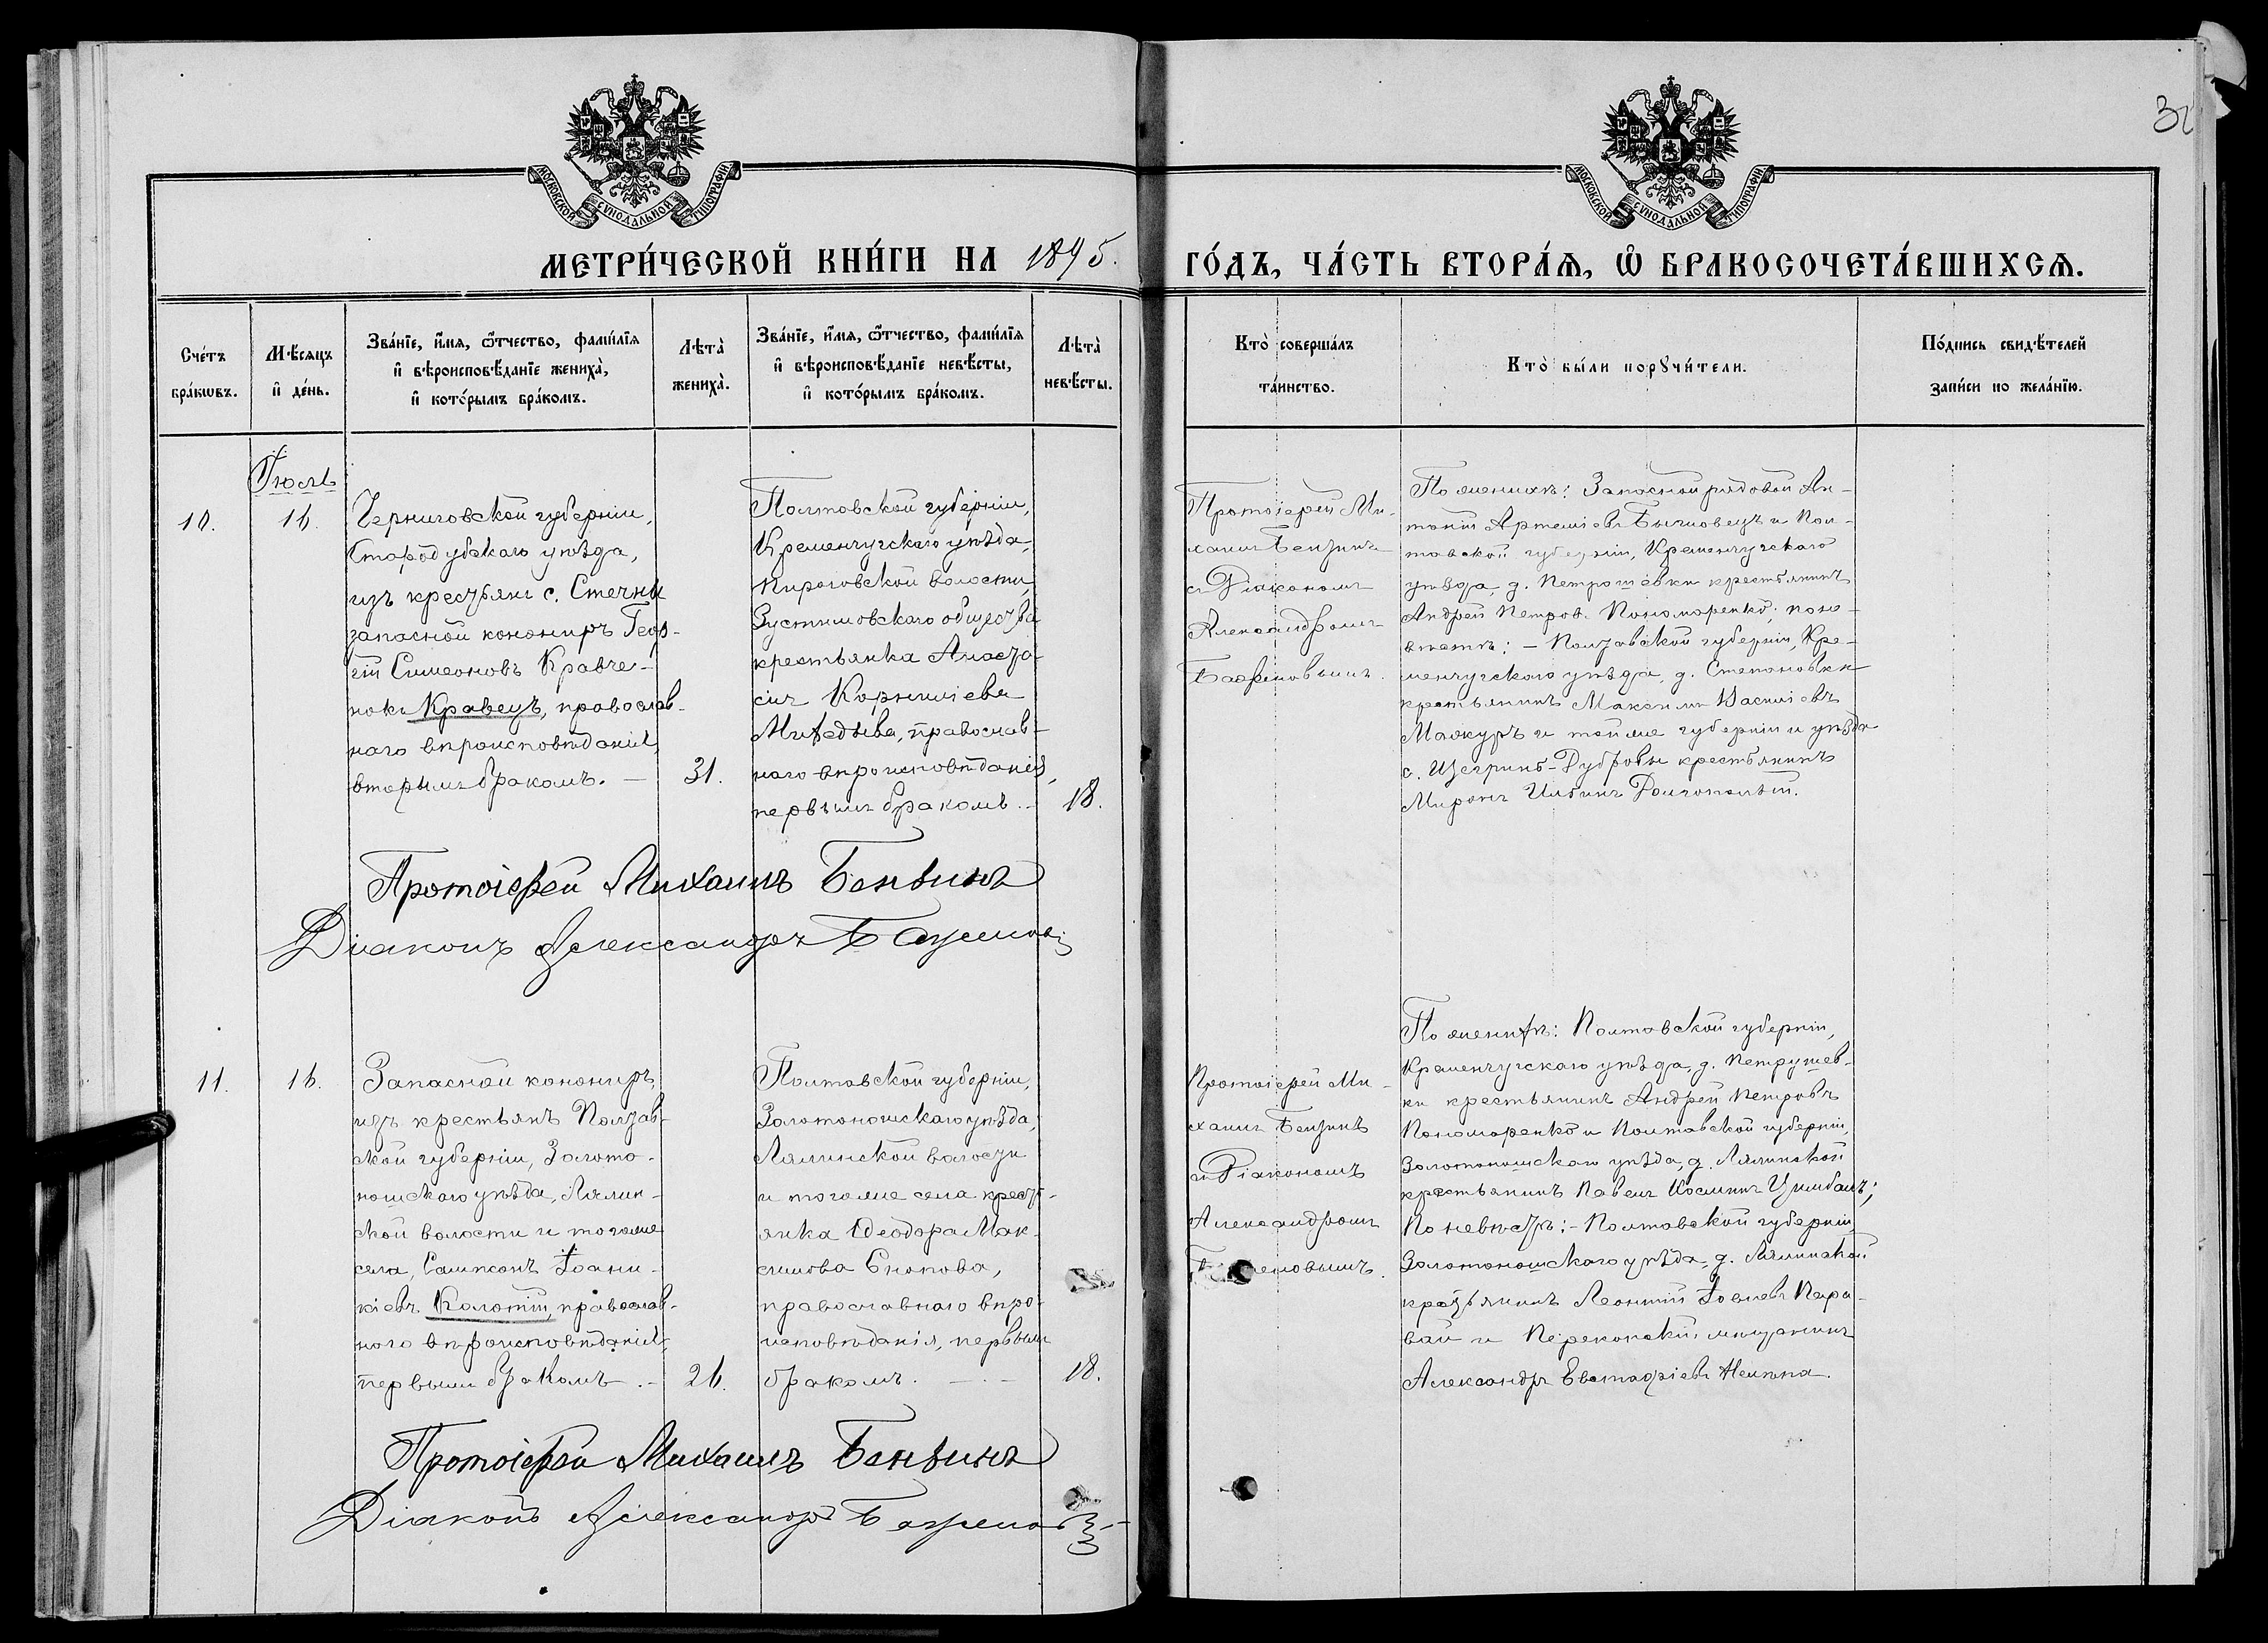 32
МОСКОВСКОЙ СѴНОДАЛЬНОЙ ТИПОГРАФІИ
МОСКОВСКОЙ СѴНОДАЛЬНОЙ ТИПОГРАФІИ
МЕТРИ́ЧЕСКОЙ КНИ́ГИ НА 1895.
ГО́ДЪ, ЧА́СТЬ ВТОРА́Ѧ, Ѡ҆ БРАКОСОЧЕТА́ВШИХСѦ.
Сче́тъ
бра́кѡвъ.
Мѣ́сяцъ
и҆ де́нь.
Зва́нїе, и҆́мя, ѻ҆́тчество, фами́лїя
и҆ вѣроисповѣ́данїе жениха̀,
и҆ кото́рымъ бра́комъ.
Лѣта̀
жениха̀.
Зва́нїе, и҆́мя, ѻ҆́тчество, фами́лїя
и҆ вѣроисповѣ́данїе невѣ́сты,
и҆ кото́рымъ бра́комъ.
Лѣта̀
невѣ́сты.
Кто̀ соверша́лъ
та́инство.
Кто̀ бы́ли порꙋчи́тели.
По́дпись свидѣ́телей
за́писи по жела́нїю.
Іюль
10.
16.
Черниговской губерніи,
Стародубскаго уѣзда,
изъ крестьянъ с. Стечны
запасной конониръ Геор-
гій Симеоновъ Кравче-
нокъ Кравецъ, православ-
наго вѣроисповѣданія,
вторымъ бракомъ. —
31.
Полтовской губерніи,
Кременчугскаго уѣзда,
Пироговской волости,
общества
крестьянка Анаста-
сія Корниліева
православ-
наго вѣроисповѣданія,
первымъ бракомъ. —
18.
Протоіерей Ми-
хаилъ Бензинъ
съ Діакономъ
Александромъ
Баженовымъ.
По женихѣ: Запасной рядовой Ан-
тоній Артеміевъ и Пол-
тавской губерніи, Кременчугскаго
уѣзда, д. Петрошевки крестьянинъ
Андрей Петров. Пономоренко; по не-
вѣстѣ: — Полтавской губерніи, Кре-
менчугскаго уѣзда, д. Степановки
крестьянинъ Максимъ Василіевъ
и той же губерніи и уѣзда
с. Дубровы крестьянинъ
Миронъ Ильинъ Долгополый.
Протоіерей Михаилъ Бензинъ
Діаконъ Александръ Баженовъ
11.
16.
Запасной конониръ
изъ крестьянъ Полтав-
ской губерніи, Золото-
ношскаго уѣзда, Лялин-
ской волости и того же
села, Сампсонъ Іоани-
кіевъ Колотій, православ-
наго вѣроисповѣданія,
первымъ бракомъ. —
26.
Полтавской губерніи,
Золотоношскаго уѣзда,
Лялинской волости
и того же села крест-
янка Ѳеодора Мак-
симова Снопова,
православнаго вѣро-
исповѣданія, первымъ
бракомъ. — . —
18.
Протоіерей Ми-
хаилъ Бензинъ
съ Діакономъ
Александромъ
Баженовымъ.
По женихѣ: Полтавской губерніи,
Кременчугскаго уѣзда, д. Петрушев-
ки крестьянинъ Андрей Петровъ
Пономоренко и Полтавской губерніи,
Золотоношскаго уѣзда, д. Лялинской
крестьянинъ Павелъ Косминъ Цимбалъ;
По невѣстѣ: — Полтавской губерніи,
Золотоношскаго уѣзда, д. Лялинской
крестьянинъ Леонтій Іовлевъ Кара-
вай и Перекопскій мищанинъ
Александръ Евстафіевъ
Протоіерей Михаилъ Бензинъ
Діаконъ Александръ Баженовъ